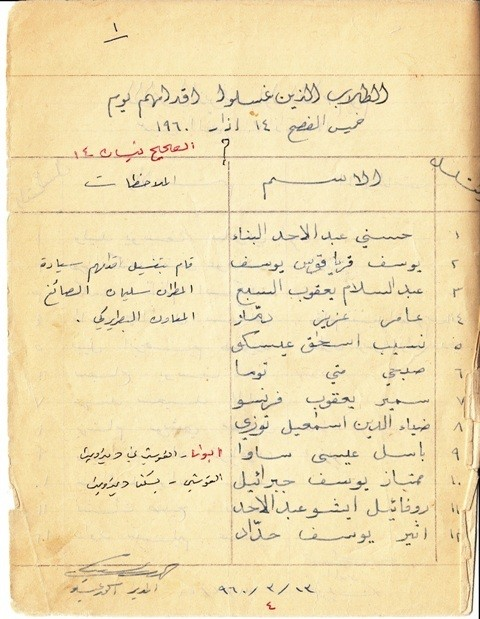 ١
الطلاب الذين غسلوا اقدامهم يوم
خميس الفصح ١٤ اذار ١٩٦٠
؟
الصحيح نيسان ١٤
الاسم
الملاحظات
١ حسني عبد الاحد البناء
٢ يوسف قرياقوس يوسف
قام بتغسيل اقدامهم سيادة
٣ عبد السلام يعقوب السبع
المطران سليمان الصائغ
٤ عامر عزيز
المعاون البطريركي .
٥ نسيب اسحق عيسكو
٦ صبحي متي توما
٧ سمير يعقوب فرنسو
٨ ضياء الدين اسمعيل نوزي
٩ باسل عيسى ساوا
١٠ ممتاز يوسف جبرائيل
١١ روفائيل ايشو عبد الاحد
١٢ اثير يوسف حدّاد
المدير
٩٦٠/٣/١٣
٤